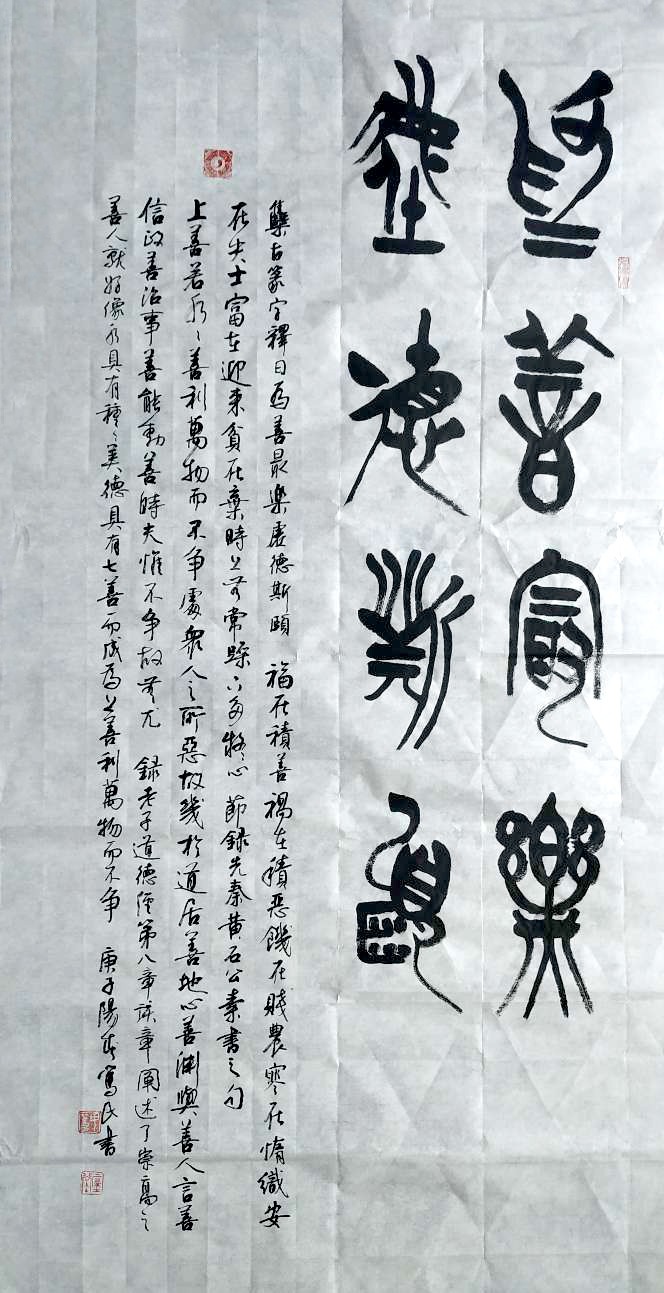 為善最樂
處德斯頤
集古篆字釋曰為善最樂處德斯頤 福在積善禍在積惡饑在賤農寒在惰織安
在失士富在迎來貧在棄時上無常躁下多疑心 節錄先秦黄石公素書之句
上善若水水善利萬物而不争處眾人之所惡故幾於道居善地心善渊與善人言善
信政善治事善能動善時夫惟不争故無尤 録老子道德經第八章該章阐述了崇高之
善人就好像水具有種種美德具有七善而成為上善利萬物而不争 庚子陽春寫氏書